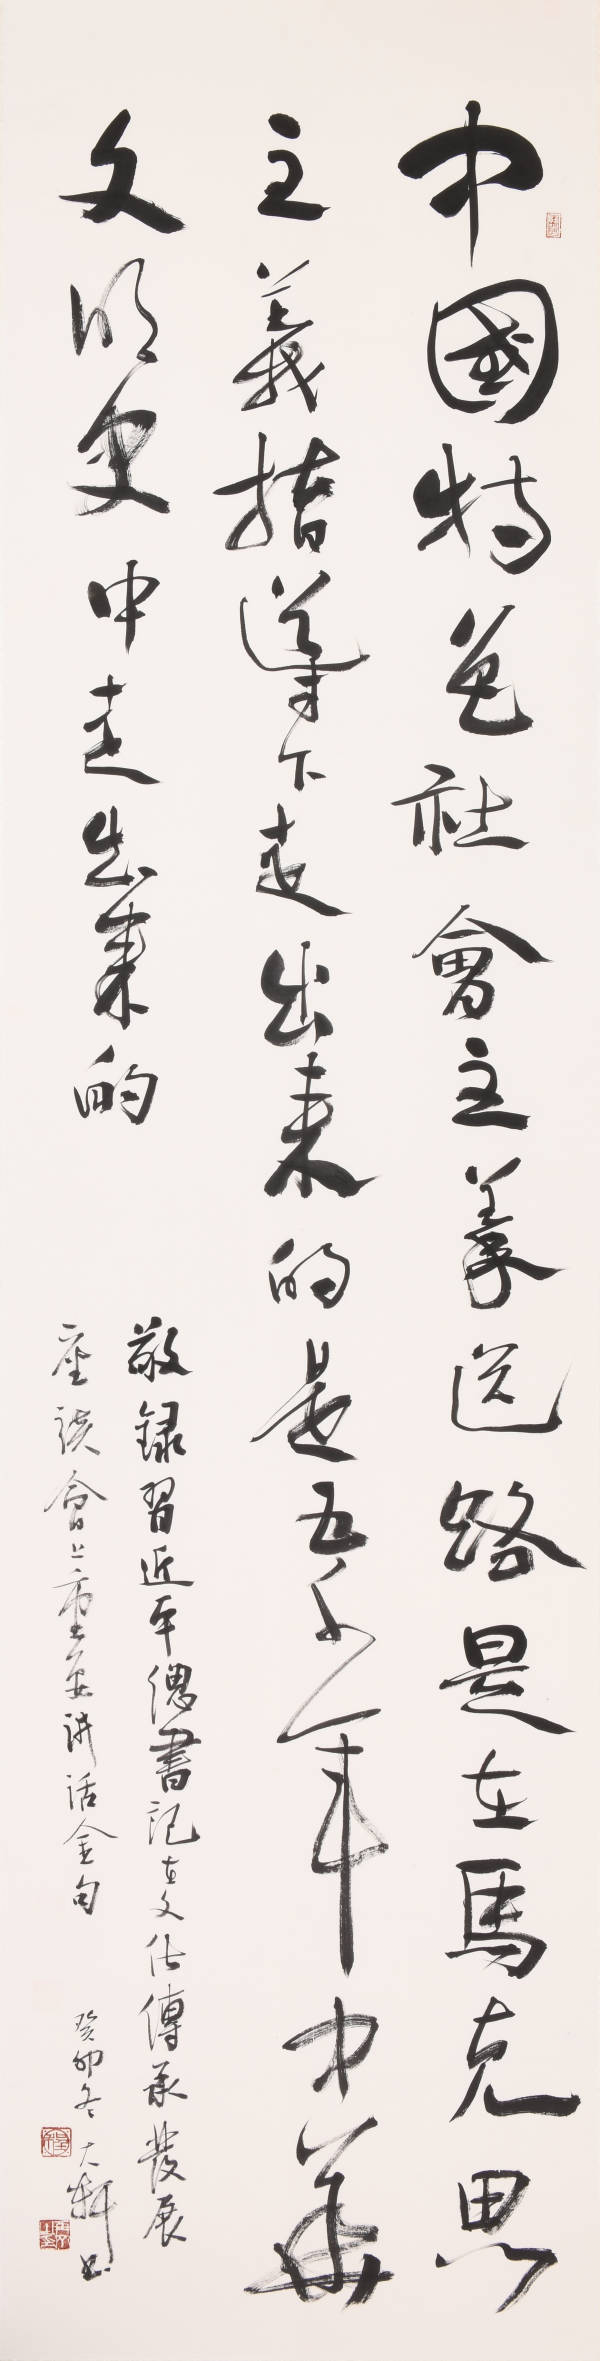 中國特色社會主義道路是在馬克思
主義指導下走出來的是五千年中華
文明史中走出來的
敬録習近平總書記在文化傳承發展
座談會上重要講話金句
癸卯冬大軒書